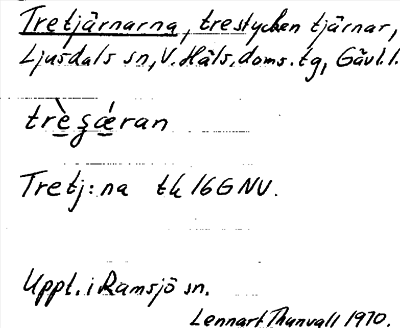 Tretjärnarna, tre stycken tjärnar,
Ljusdals sn, V. Häls. doms. tg, Gävl. l.
trèʂǽran
Tretj:na tk 16G NV.
Uppt. i Ramsjö sn.
Lennart Thunvall 1970.